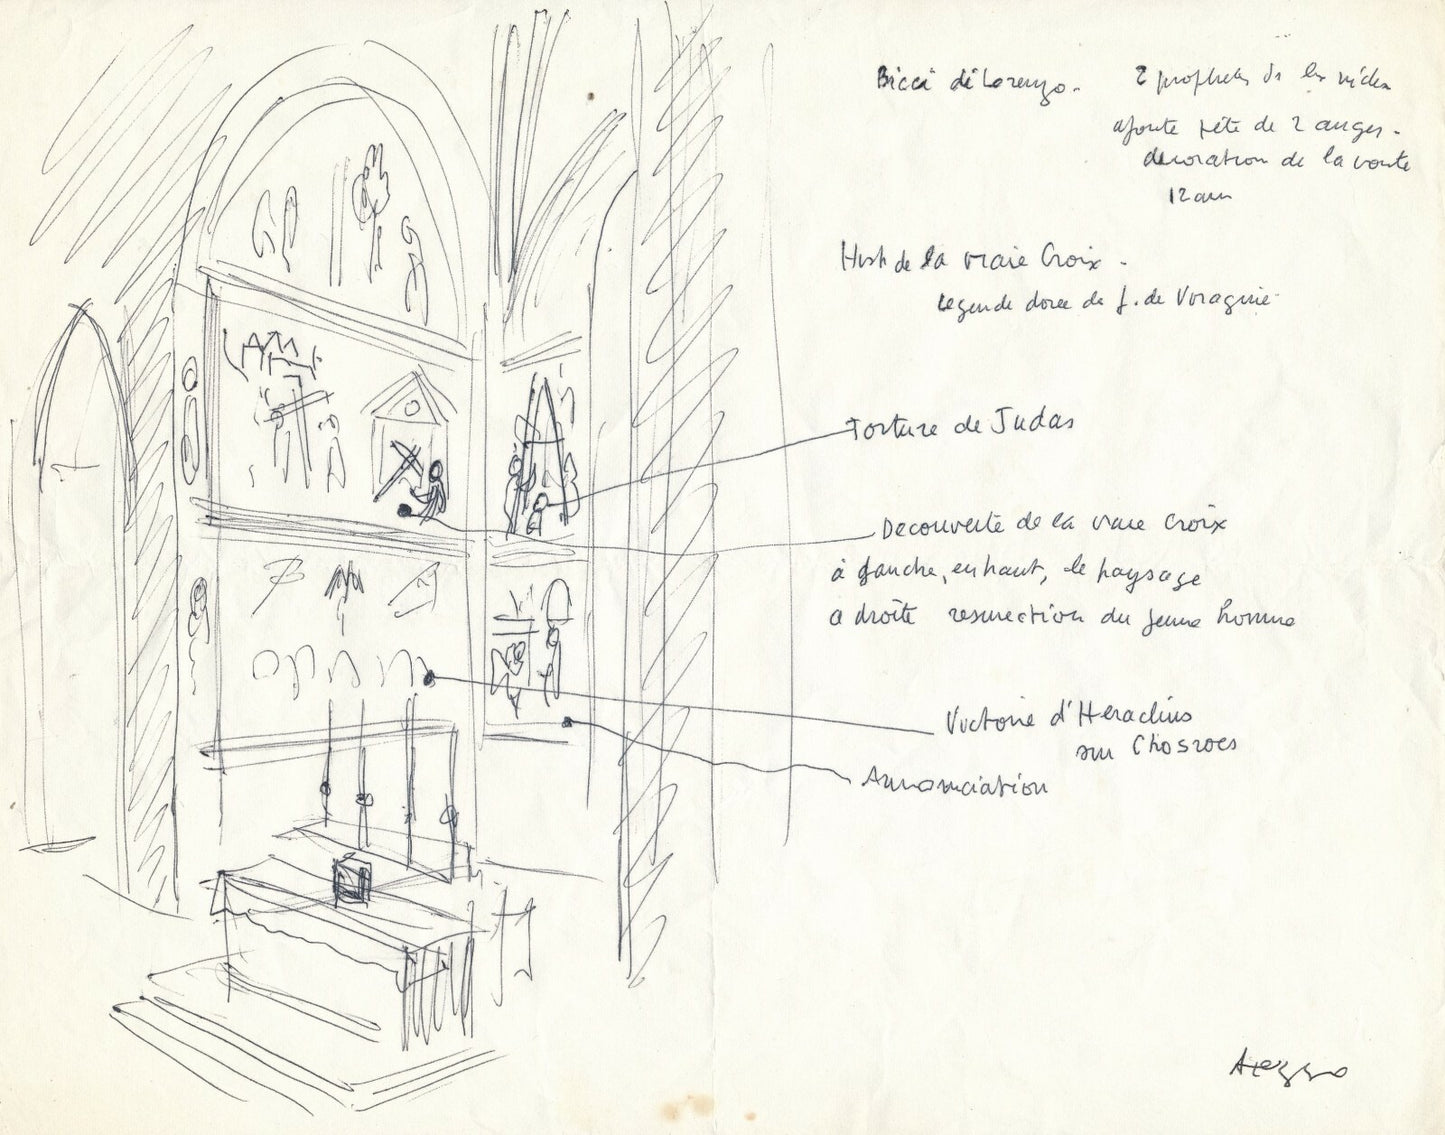 Bicci di Lorenzo.
2 prophetes ds les niches
ajoute tête de 2 anges.
decoration de la voute
12 ans
Hist de la vraie Croix.
Legende doree de J. de Voragine
Torture de Judas
Decouverte de la vraie croix
à gauche, en haut, le paysage
a droite resurection du jeune homme
Victoire d'Heraclius
sur Chosroes
Annonciation
Arezzo